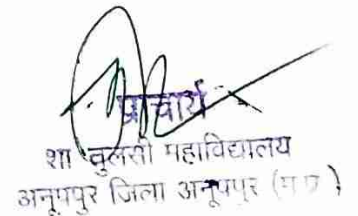 प्राचार्य
शा तुलसी महाविद्यालय
अनूपपुर जिला अनूपपुर (म प्र)